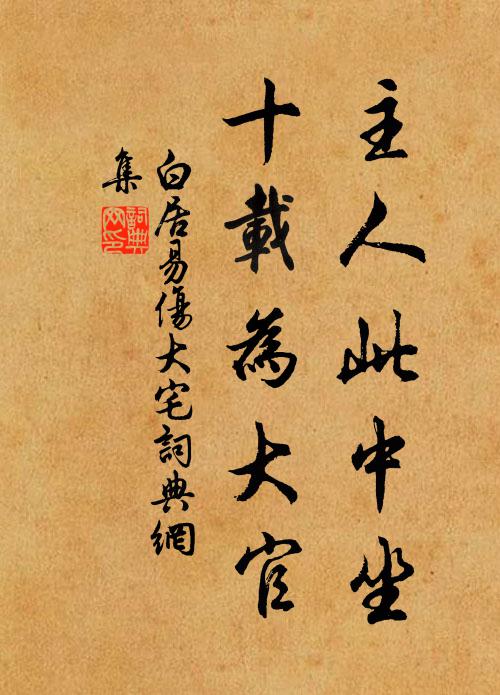 主人此中坐
十載為大官
白居易傷大宅詞典網
集
詞典
网印